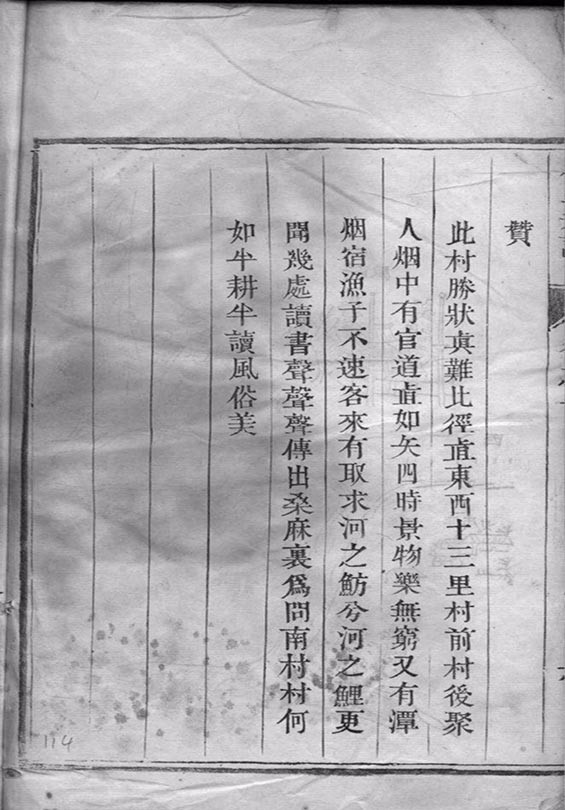 贊
此村勝狀真難比徑直東西十三里村前村後聚
人烟中有官道直如矢四時景物樂無窮又有潭
烟宿漁子不速客來有取求河之魴兮河之鯉更
聞幾處讀書聲聲聲傳出桑麻裏爲問南村村何
如半耕半讀風俗美
114